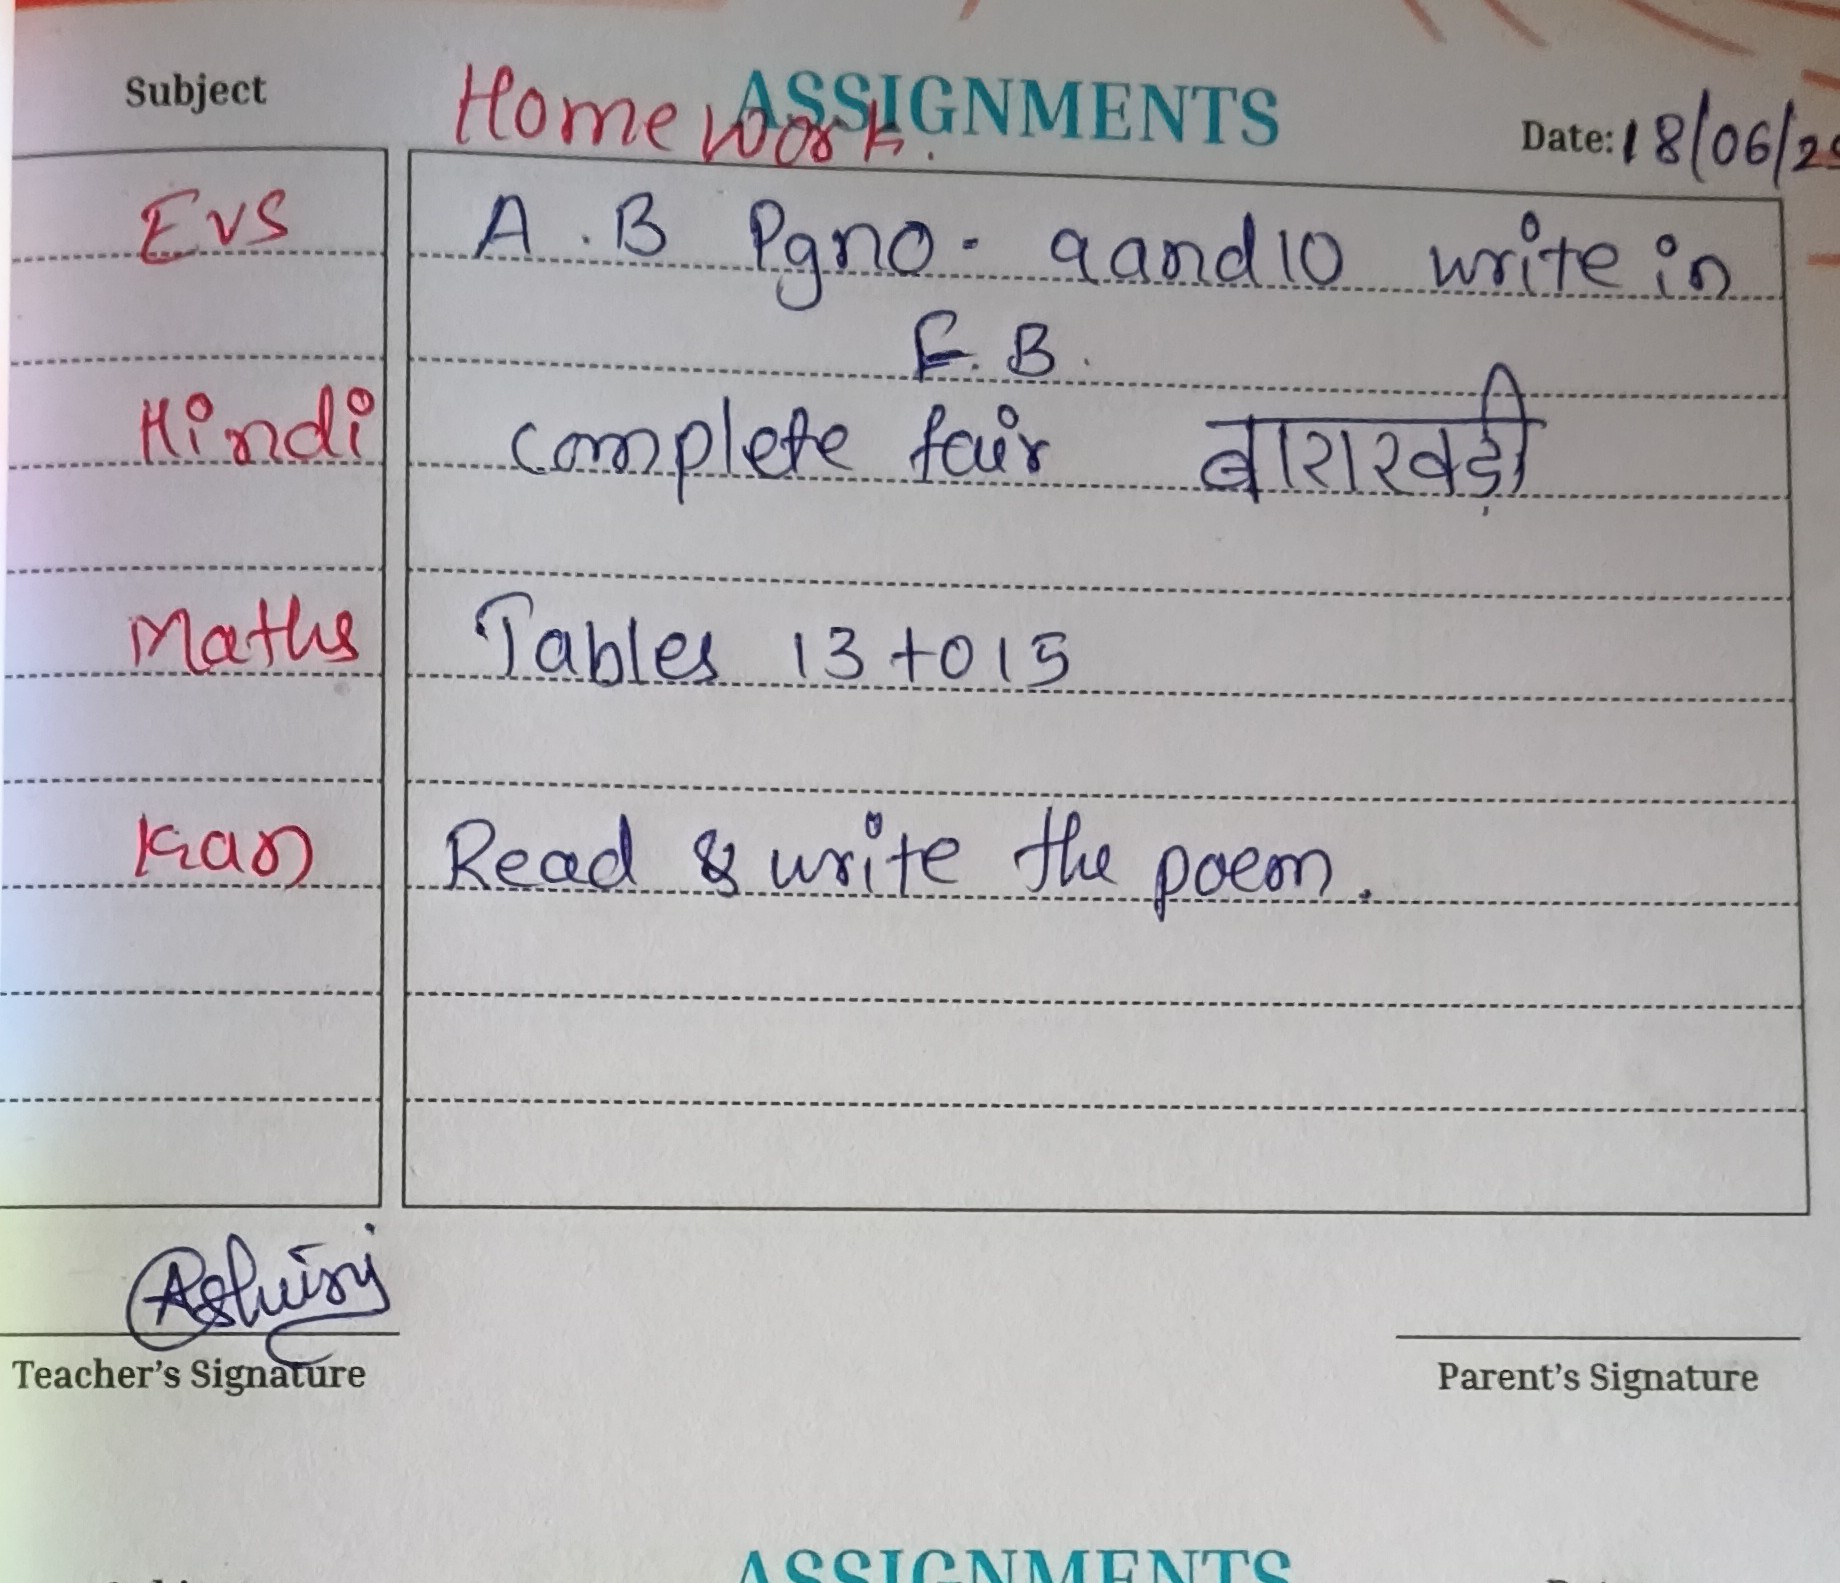 Subject Home Work. ASSIGNMENTS Date: 18/06/25
EVS A.B Pgno. 9 and 10 write in
F.B.
Hindi complete fair बाराखड़ी
Maths Tables 13 to 15
Kan Read & write the poem.
Teacher's Signature Parent's Signature
ASSIGNMENTS